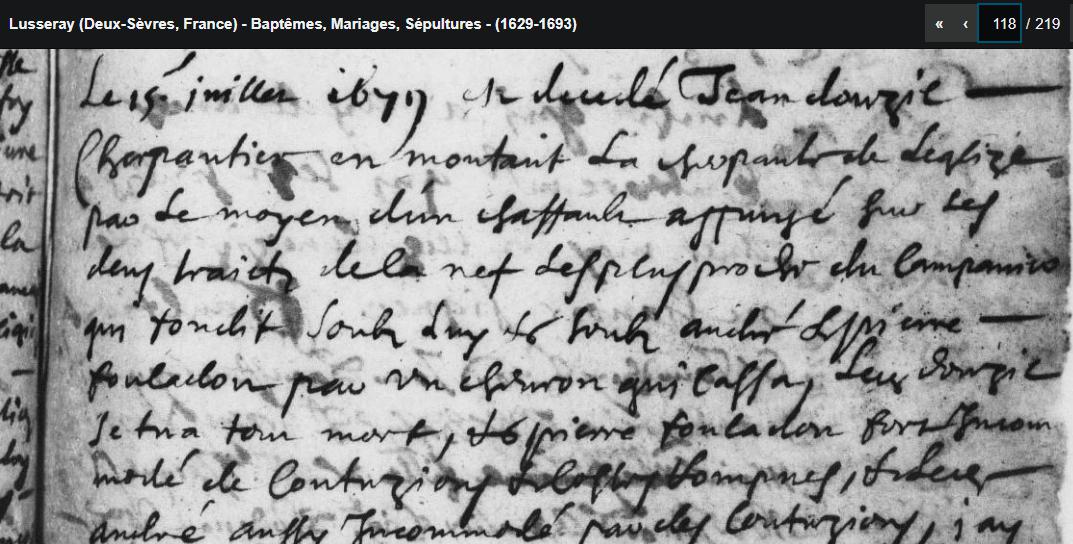 Lusseray (Deux-Sèvres, France) - Baptêmes, Mariages, Sépultures - (1629-1693)
« ‹ 118 / 219
Le 15 juillet 1679 est decedé Jean douzil
Charpantier en montant la charpante de Léglize
par Le moyen d'un chaffault appuyé sur Les
deux traicts de la nef Les plus proche du
qui fondit soubz Luy & soubz andré & pierre
fouladon par un chevron qui Cassa, Led douzil
se tua tout mort, & pierre fouladon fort Incom
modé de Contuzions & costes rompues, & led
andré aussy Incommodé par des Contuzions, j ay